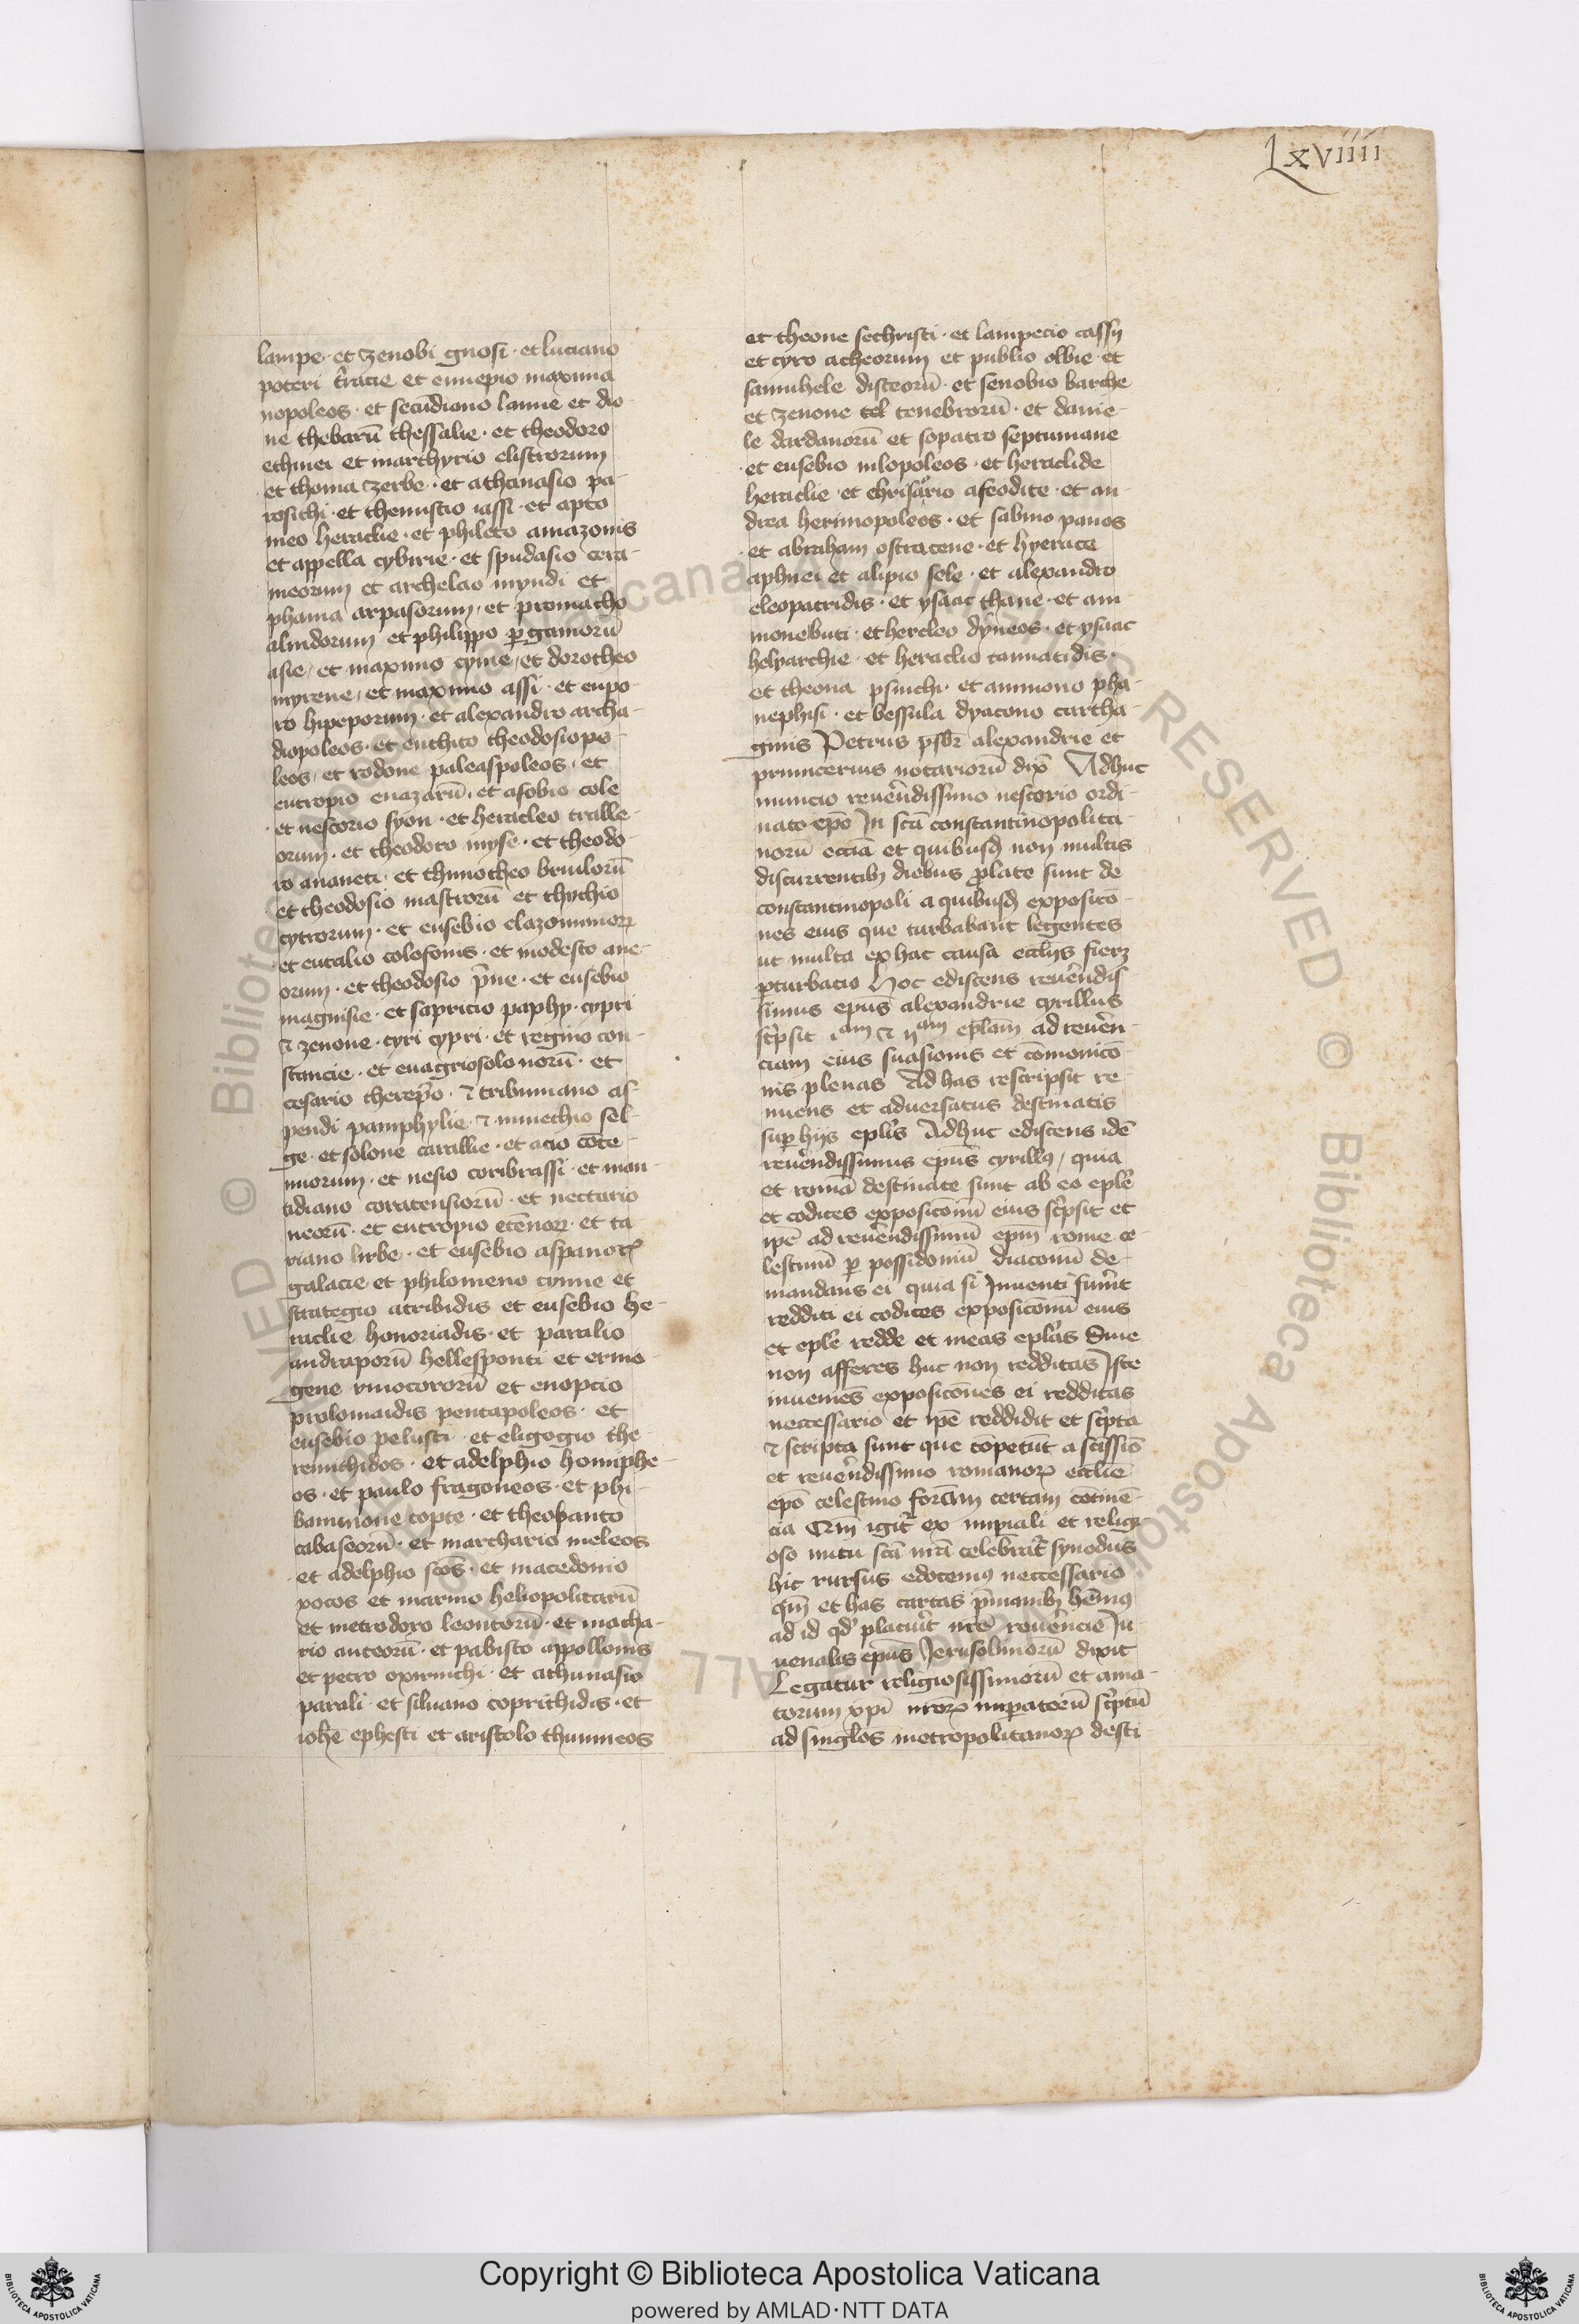 Lxviiii
lampe · et zenobi gnosi · et luciano
poteri t̾racie et ennepio maximia
nopoleos · et secūdiano lanne et dio-
ne thebarū thessalie · et theodoro
echinei et marthyrio elistrorum
et thoma zerbe · et athanasio pa-
rosithi · et themistio iassi · et apto
meo heraclie · et phileto amazonis
et appella cybirie · et spudasio cera-
meorum et archelao myndi et
phania arpasorum, et promacho
alindorum et philippo ꝑgamorū
asie, et maximo cyme, et dorotheo
myrene, et maximo assi · et eupo-
ro hipeporum · et alexandro archa-
diopoleos · et euthito theodosiopo-
leos, et rodone paleaspoleos, et
eutropio euazarū, et afobio cole
et nestorio syon · et heracleo tralle-
orum · et theodoto nyse · et theodo-
ro ananeti · et thimotheo briulorū
et theodosio mastrorū et thychio
cytrorum · et eusebio clazominiorꝝ
et eutalio colofonis · et modesto ane-
orum · et theodosio p̾ne · et eusebio
magnisie · et sapricio paphy · cypri
⁊ zenone · cyri cypri · et regino con-
stancie · et euagrio solo norū · et
cesario therep̄o · ⁊ tribuniano as-
pendi pamphylie · ⁊ nunechio sel-
ge · et solone carallie · et acio cōte-
nnorum · et nesio coribrassi · et man-
tidiano corratensiorū · et nectario
neorū · et eutropio etēnorꝝ · et ta-
riano lirbe · et eusebio aspanorꝝ
galacie et philomeno cynne et
strategio atribidis et eusebio he-
raclie honoriadis · et paralio
andraporū hellesponti et ermo-
gene rinocororū et enoptio
prolomaidis pentapoleos · et
eusebio pelusti · et eligogio the-
renuthidos · et adelphio honiphe-
os · et paulo fragoneos · et phi-
bammone copte · et theopanto
cabaseorū · et marchario meleos
et adelphio scōs · et macedonio
xocos et marino heliopolitarū
et metrodoro leontorū · et macha-
rio anteorū · et pabisto appollonis
et petro oxirinchi · et athanasio
parali · et siluano coprithidis · et
ioh̄e ephesti et aristolo thunneos
et theone sethristi · et lampecio cassij
et cyro acheorum et publio olbie · et
samuhele disteorū · et senobio barche
et zenone tel tenebrorū · et danie-
le dardanorū et sopatro septumane
et eusebio nilopoleos · et heraclide
heraclie · et chrisario afeodite · et an-
drea herimopoleos · et sabino panos
et abraham ostracene · et hyerace
aphnei et alipio sele · et alexandro
cleopatridis · et ysaac thane · et am-
monebuti · et hercleo dyneos · et ysaac
helyarchie · et heraclio tamiatidis ·
et theona psinchi · et ammono pha-
nephisi · et bessula dyacono cartha-
ginis Petrus psb̄r alexandrie et
primicerius notariorū dix̄ Adhuc
nuncio reuerēdissimo nestorio ordi-
nato ep̄o In scā constantinopolita-
norū ecc̄ia et quibusdꝫ non multis
discurrentibꝫ diebus ꝓlate sunt de
constantinopoli a quibusdꝫ expositō-
nes eius que turbabant legentes
ut multa ex hac causa eccl̄ijs fierꝫ
ꝑturbacio Hoc ediscens reuerēdis
simus ep̄us alexandrie cyrillus
sc̾psit iam ⁊ ijam epl̄am ad reuerē-
ciam eius suasionis et cōmonicō-
nis plenas Ad has rescripsit re-
nuens et aduersatus destinatis
suꝑ hijs epl̄is Adhuc ediscens idē
reuerēdissimus ep̄us cyrillꝯ, quia
et romā destinate sunt ab eo epl̄e
et codices exposicōnū eius sc̾psit et
ip̄e ad reuerēdissimū ep̄m rome ce-
lestinū ꝑ possidoniū diaconū de-
mandans ei quia si Inuenti fuer̄it
redditi ei codices exposicōnū eius
et epl̄e redde et meas epl̄as Sine
non afferes huc non redditas Iste
inueniēs exposicōnes ei redditas
neccessario et ip̄e reddidit et sc̾pta
⁊ scripta sunt que cōpetūt a sc̄issiō
et reuerēdissimo romanorꝝ eccl̄ie
ep̄o celestino formam certam cōtinē-
cia Qm̄ igit̾ ex imꝑiali et religi
oso nutu scā nr̄a celebrat̾ synodus
hic rursus edocemꝯ neccessario
qm̄ et has cartas p̄manibꝫ hēmꝯ
ad id qd̾ placuer̄it nr̄e reuerēcie Iu-
uenalis ep̄us Ierusolimorū dixit
Legatur religiosissimorū et ama-
torum xp̄i nr̄orꝝ imꝑatorū sc̾ptū
ad singlos metropolitanorꝝ desti-
Copyright © Biblioteca Apostolica Vaticana
powered by AMLAD·NTT DATA